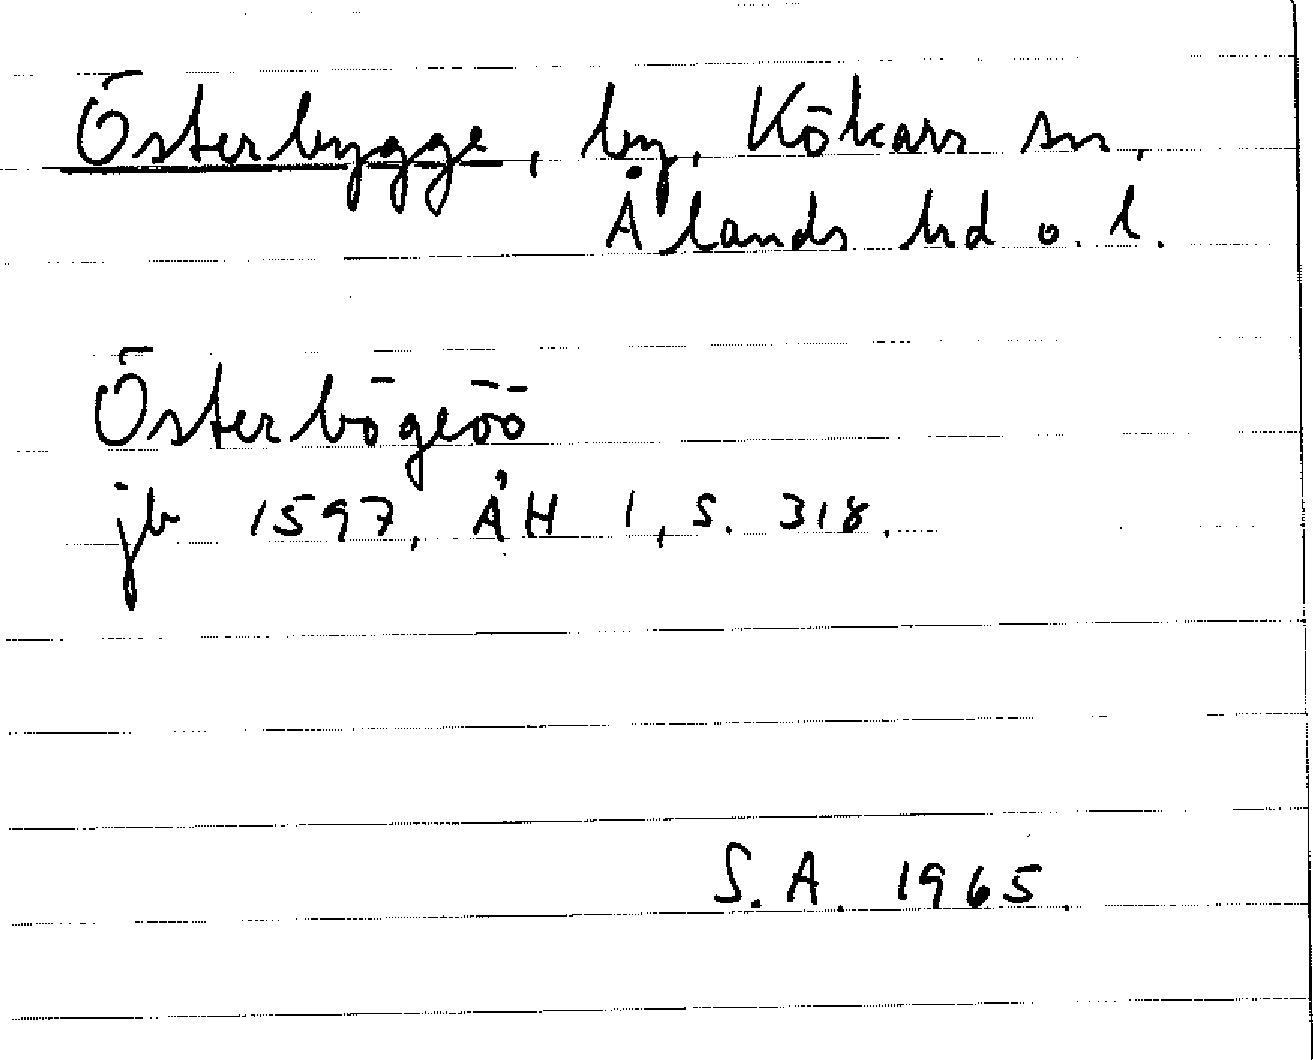 Österbygge, by, Kökars sn,
Ålands hd o. l.
Österbögeöö
jb 1597, ÅH 1, s. 318.
S.A. 1965.